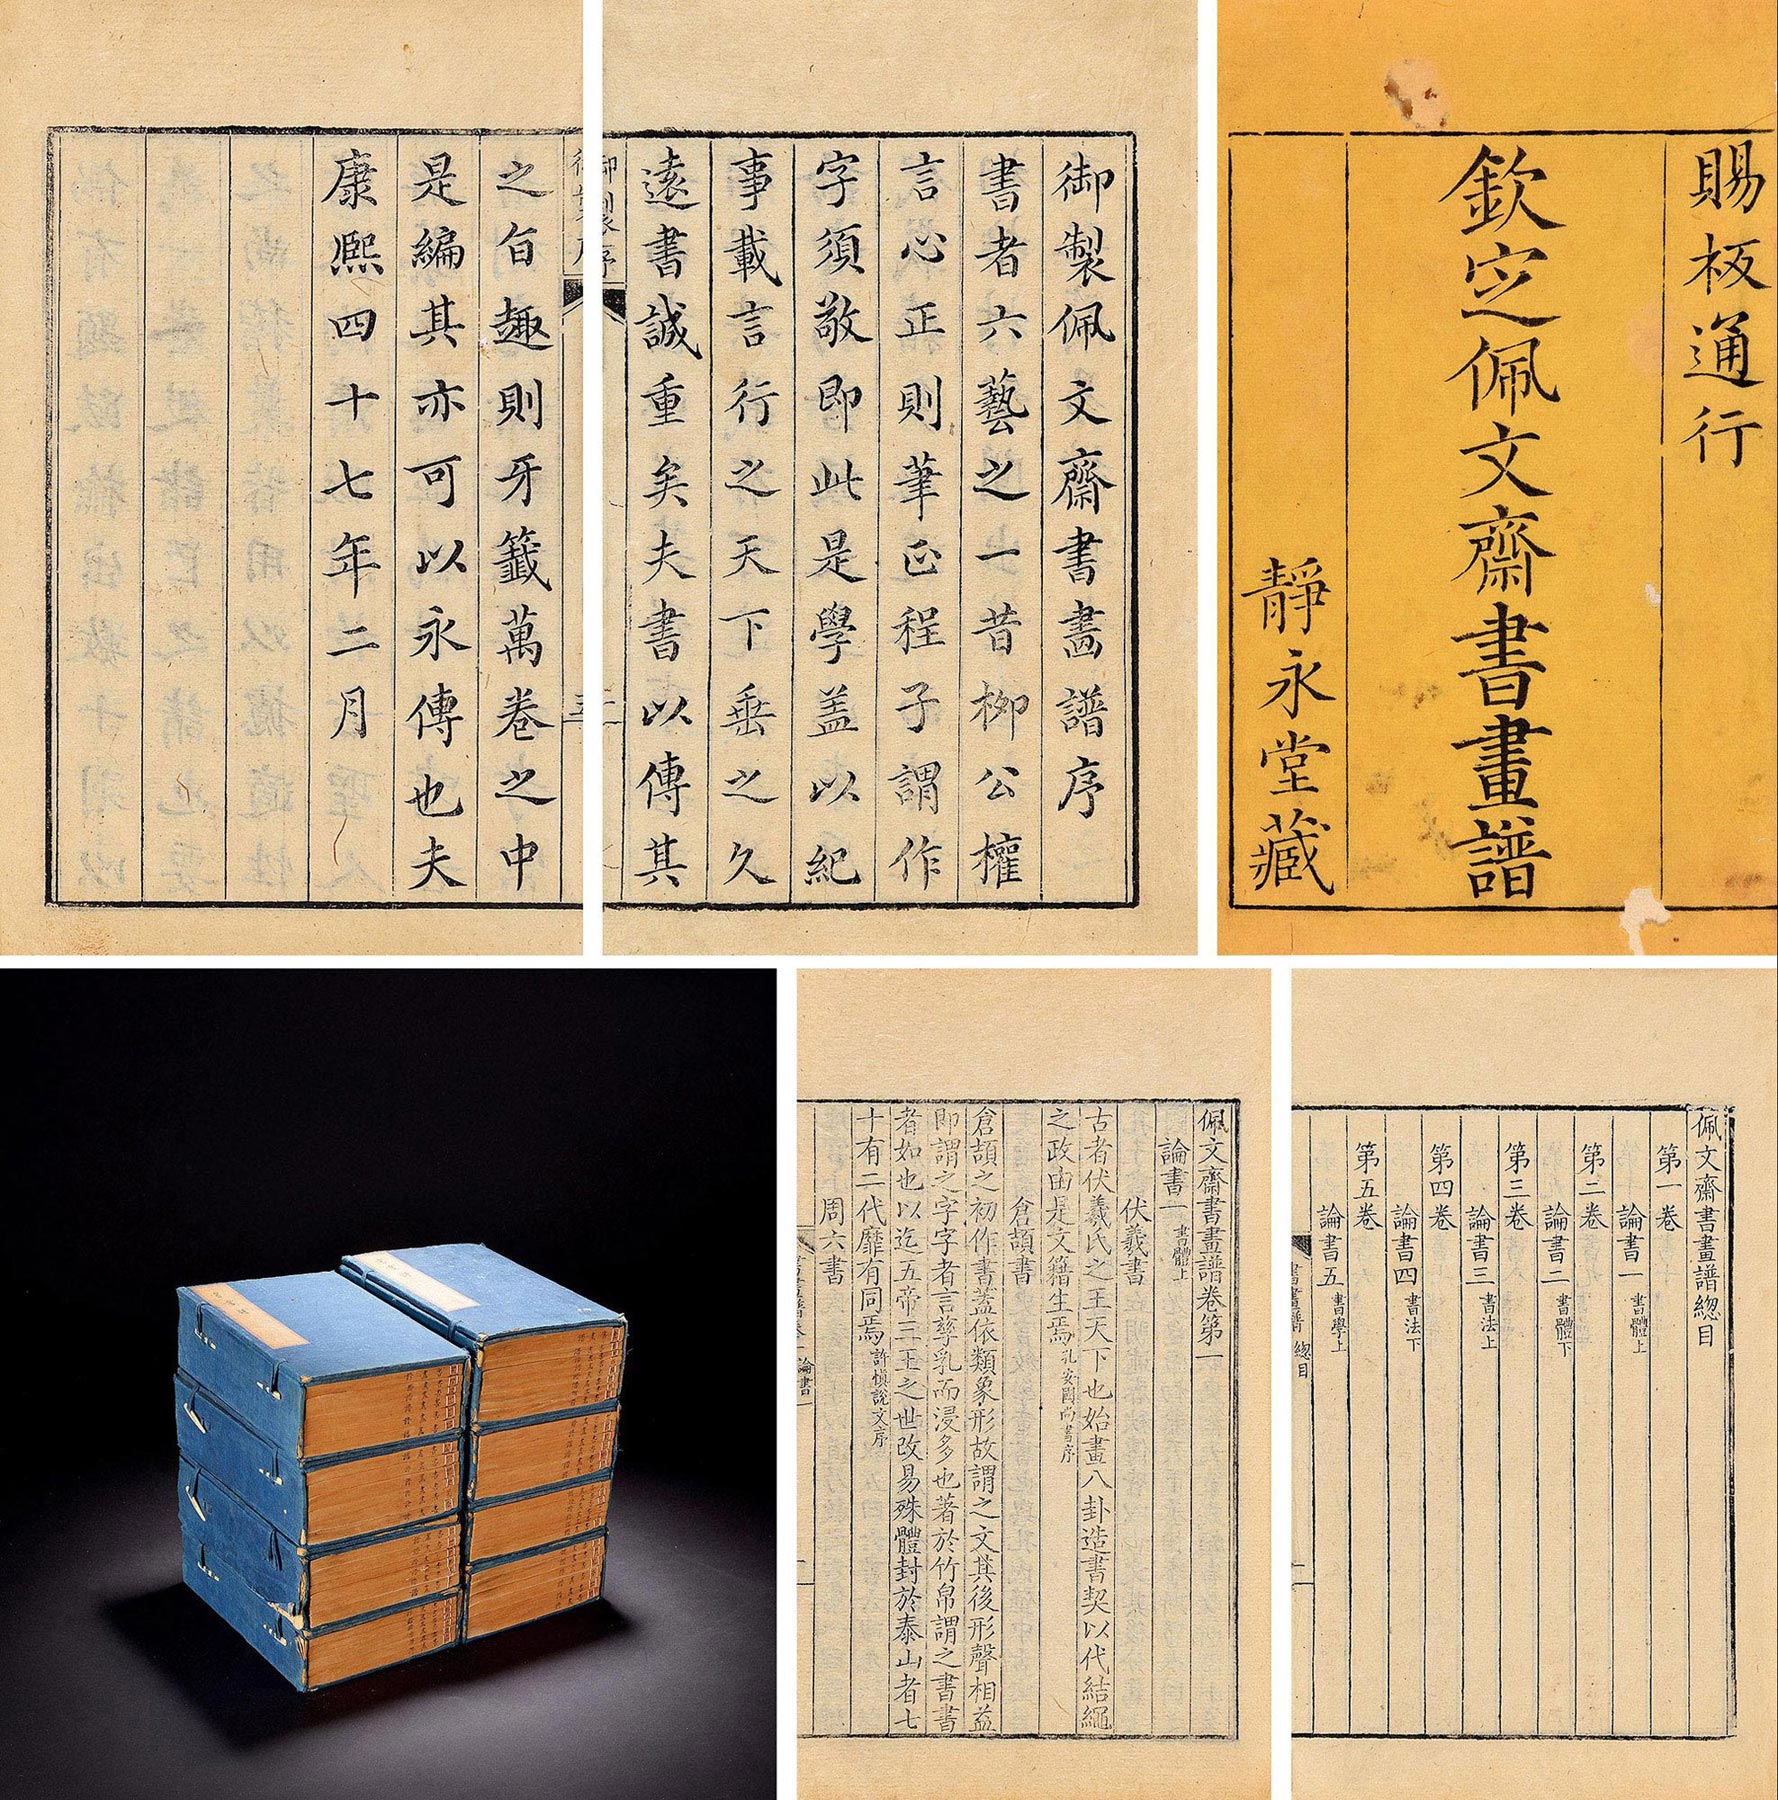 賜板通行
欽定佩文齋書畫譜
靜永堂藏
御製佩文齋書畵譜序
書者六藝之一昔柳公權
言心正則筆正程子謂作
字須敬即此是學蓋以紀
事載言行之天下垂之久
遠書誠重矣夫書以傳其
御製序
之旨趣則牙籤萬卷之中
是編其亦可以永傳也夫
康熙四十七年二月
佩文齋書畫譜總目
第一卷
論書一 書體上
第二卷
論書二 書體下
第三卷
論書三 書法上
第四卷
論書四 書法下
第五卷
論書五 書學上
書畫譜 總目
佩文齋書畫譜卷第一
論書一 書體上
伏羲書
古者伏羲氏之王天下也始畫八卦造書契以代結繩
之政由是文籍生焉 孔安國尚書序
倉頡書
倉頡之初作書蓋依類象形故謂之文其後形聲相益
即謂之字字者言孳乳而浸多也著於竹帛謂之書書
者如也以迄五帝三王之世改易殊體封於泰山者七
十有二代靡有同焉 許慎說文序
周六書